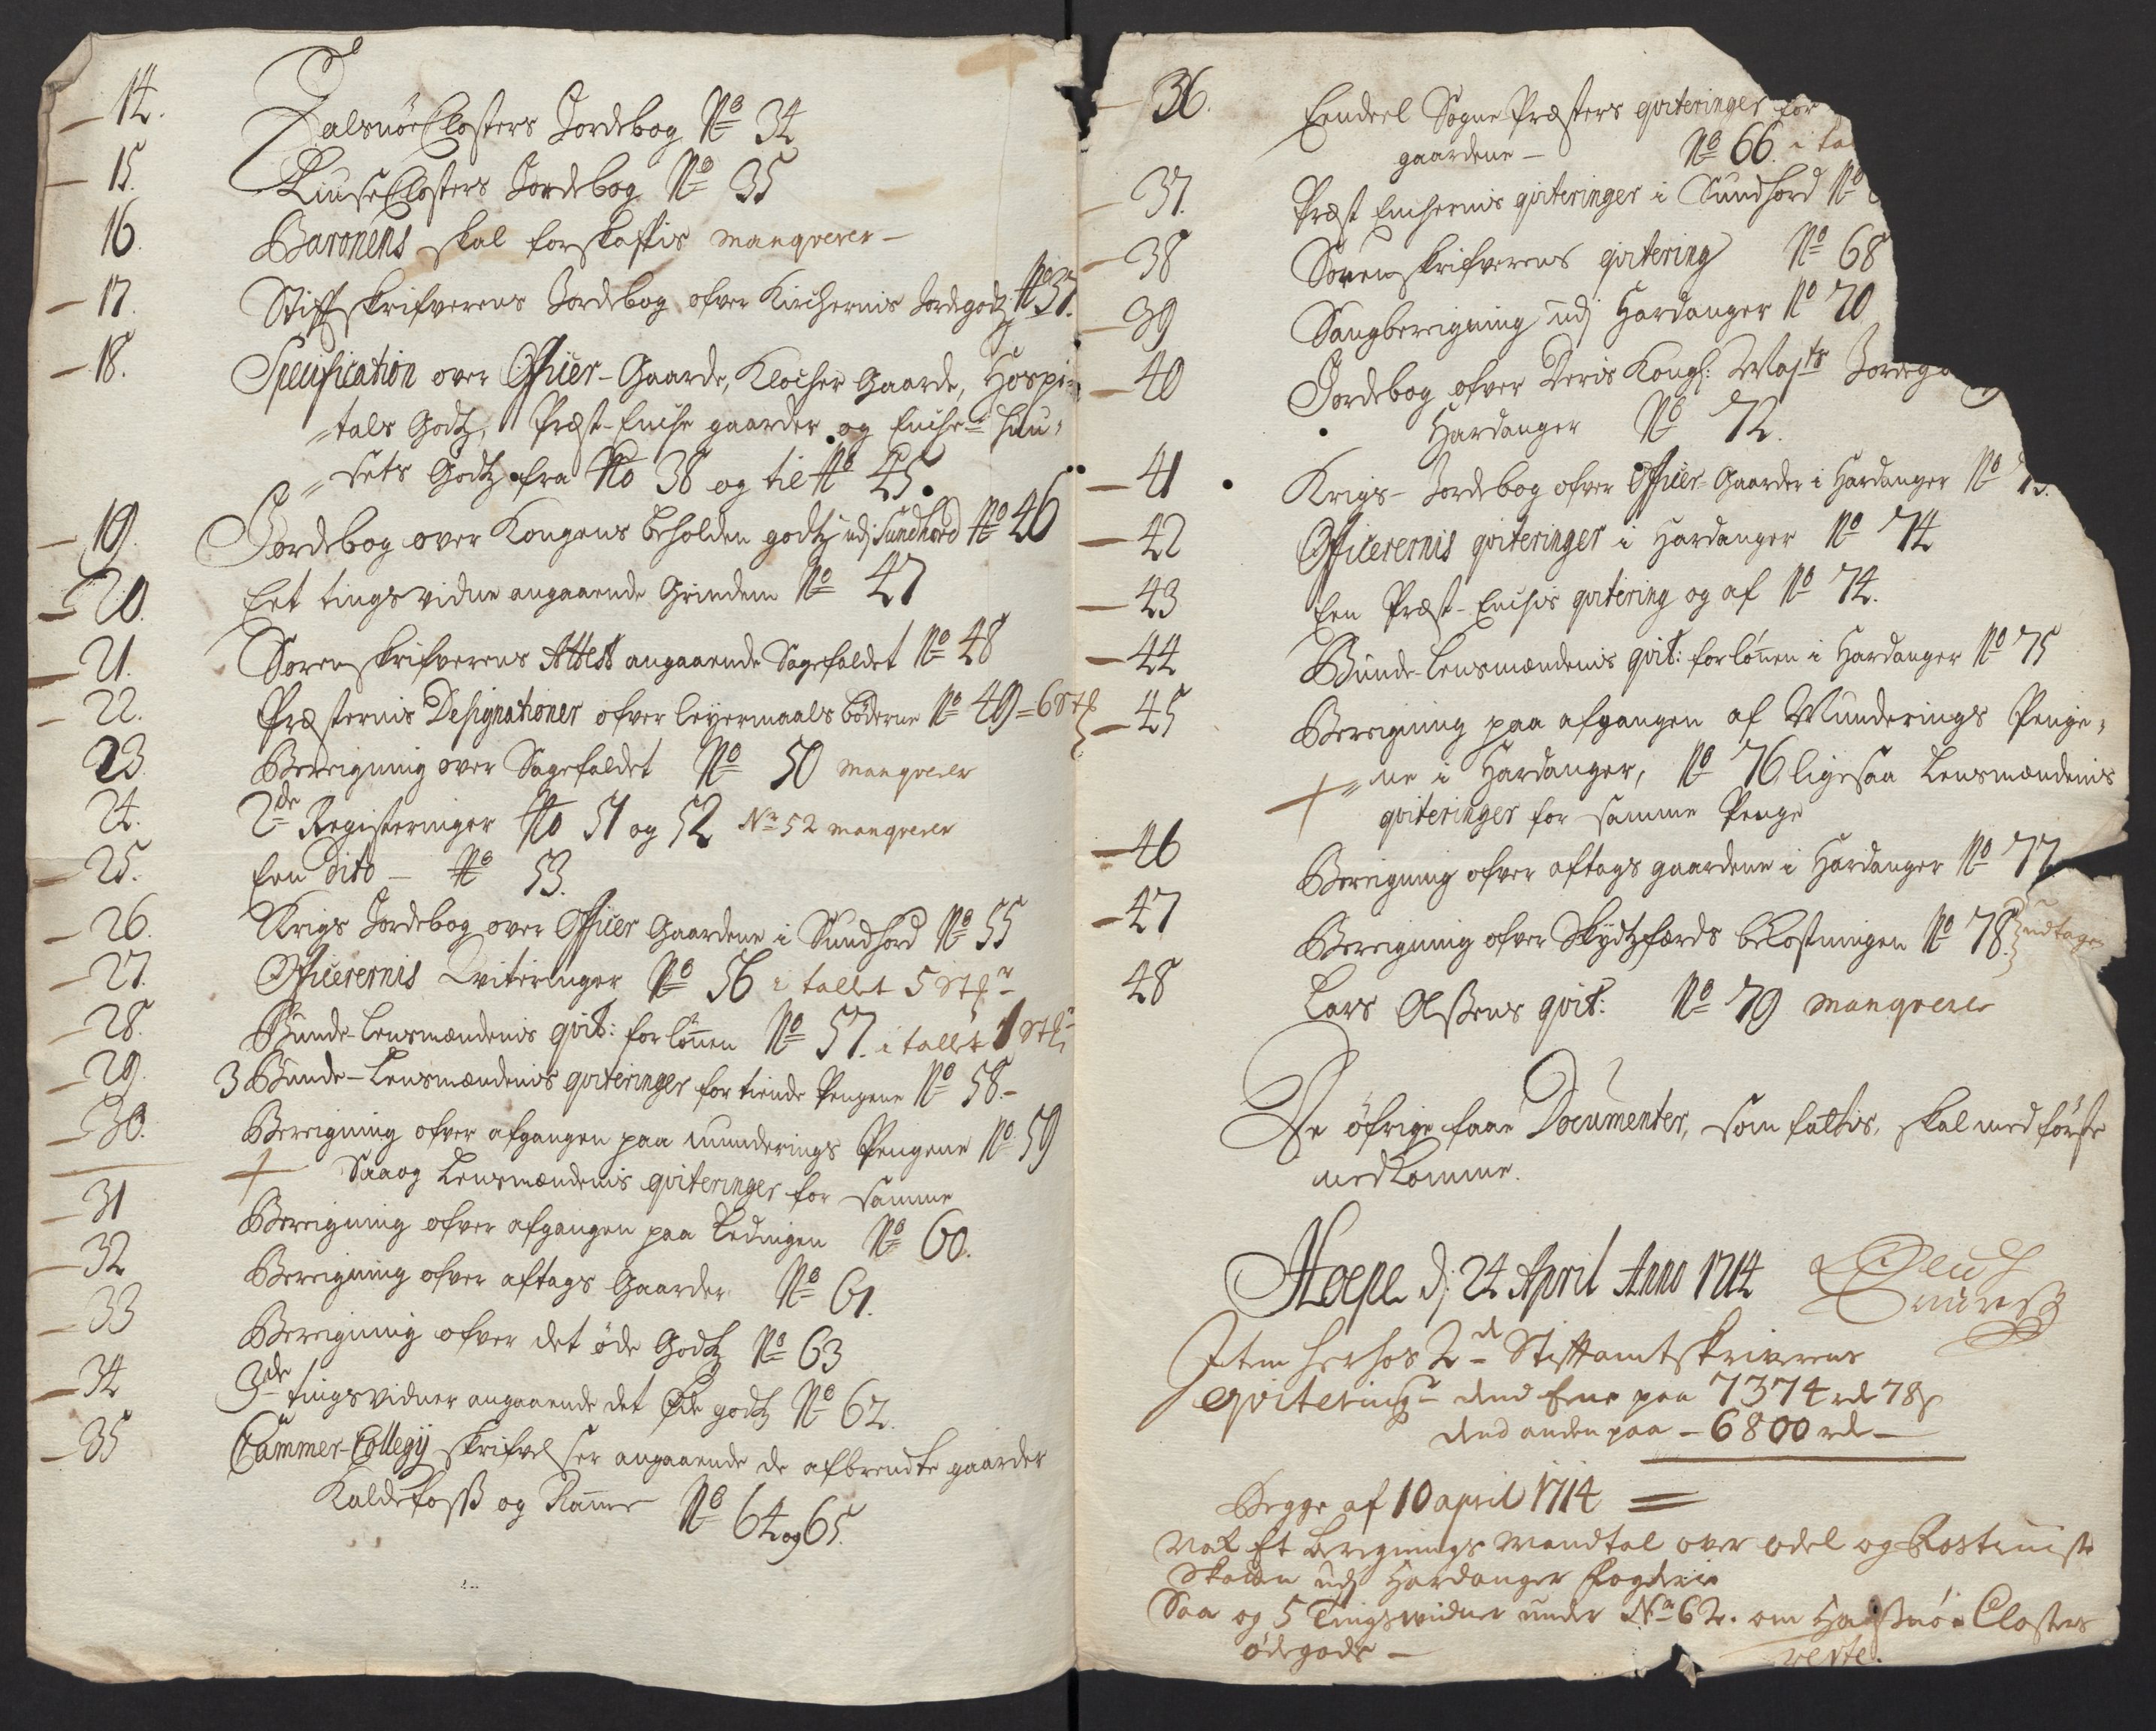 14. Halsnöe Closters Jordebog No 34
15. Liuse Closters Jordebog No 35
16. Baronens skal forskaffis manqverer
17. Stiftskrifverens Jordebog ofver Kirchernis Jordegodtz No 37.
18. Specification over Officer-Gaarde, Klocher Gaarde, Hospi=
=tals Godtz, Præst-Enche gaarder og Enche-Huu=
=sets Godtz fra No 38 og til No 45.
19. Jordebog over Kongens beholden godtz udj Sundhord No 46
20. Eet tingsvidne angaaende Grinden No 47
21. Sorenskrifverens Attest angaaende Sagefaldet No 48
22. Præsternis Designationer ofver leyermaals böderne No 49 = 6 St
23. Beregning over Sagefaldet No 50 manqverer
24. 2de Registeringer No 51 og 52 Nr 52 manqverer
25. Een Dito - No 53.
26. Krigs Jordebog over Officer Gaardene i Sundhord No 55
27. Officerernis Qviteringer No 56 i tallet 5 St
28. Bunde-Lensmændenis qvit: for lönnen No 57. i tallet 1 St
29. 3 Bunde-Lensmændenis qviteringer for tiende Pengene No 58.-
30. Beregning ofver afgangen paa munderings Pengene No 59
+ Saa og Lensmændenis qviteringer for samme
31 Beregning ofver afgangen paa Ledingen No 60.
32 Beregning ofver aftags Gaarder No 61.
33 Beregning ofver det öde Godtz No 63
34 3de tingsvidner angaaende det Öde godtz No 62.
35 Cammer-Collegij skrifvelser angaaende de afbrendte gaarder
Kaldefoss og No 64 og 65.
36. Eendeel Sogne Præsters qviteringer for
gaardene - No 66. i ta
37. Præst Enchernis qviteringer i Sundhord No
38 Sorenskrifverens qvitering No 68
39 Saugberegning udj Hardanger No 70
40 Jordebog ofver Deris Kongl: Majts Jordego
Hardanger No 72.
41 Krigs-Jordebog ofver Officer-Gaarder i Hardanger No 73.
42 Officerernis qviteringer i Hardanger No 74
43 Een Præst-Enchis qvitering og af No 74.
44 Bunde-Lensmændenis qvit: for lönnen i Hardanger No 75
45 Beregning paa afgangen af Munderings Penge=
+ =ne i Hardanger, No 76, ligesaa Lensmændenis
qviteringer for samme Penge
46 Beregning ofver aftags gaardene i Hardanger No 77
47 Beregning ofver Skydtzfærds bekostningen No 78. udtagen
48 Lars Olssens qvit: No 79 manqverer
De öfrige faae Documenter, som fattis, skal med förste
nedkomme.
d: 24 April Anno 1714
Item herhos 2d Stiftamtskriverens
qvitering dend Ene paa 7374 rd 78 s
dend anden paa - 6800 rd -
Begge af 10 april 1714
nok Et beregnings mandtal over odel og
Skatten udj Hardanger fogderie
Saa og 5 Tingsvidner under No 62. om Halsnöe Closters
ödegods -